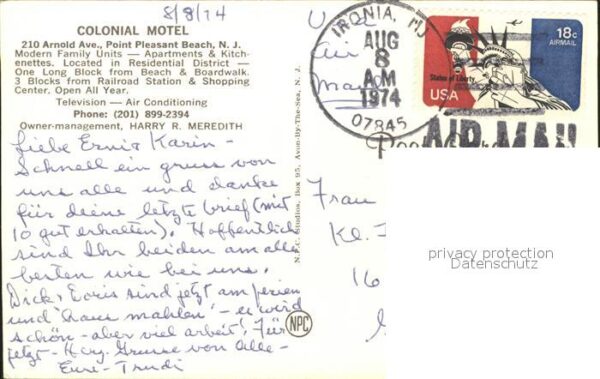 8/8/74
COLONIAL MOTEL
210 Arnold Ave., Point Pleasant Beach, N. J.
Modern Family Units — Apartments & Kitch-
enettes. Located in Residential District —
One Long Block from Beach & Boardwalk.
3 Blocks from Railroad Station & Shopping
Center. Open All Year.
Television — Air Conditioning
Phone: (201) 899-2394
Owner-management, HARRY R. MEREDITH
Liebe Erni & Karin -
Schnell ein gruss von
uns alle und danke
für deine letzte brief (mit
10 gut erhalten). Hoffentlich
sind Ihr beiden am alle
besten wie bei uns.
Dick & Boris sind jetzt am ferien
und 'haus mahlen' - es wird
schön - aber viel arbeit! Für
jetzt - Herz. Grusse von alle -
Eure - Trudi
N.P.C. Studios, Box 95, Avon-By-The-Sea, N. J.
NPC
Air
Mail
IRONIA, NJ
AUG
8
AM
1974
07845
18c
AIRMAIL
Statue of Liberty
USA
AIR MAIL
Frau
Kl.
16
privacy protection
Datenschutz